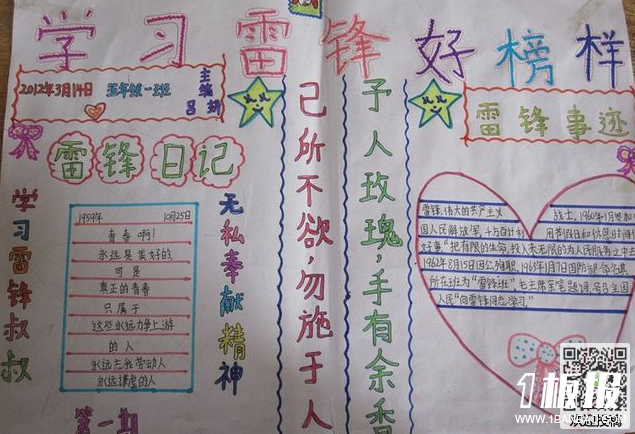 学习雷锋好榜样
2012年3月14日 五年级一班
主编
吕
雷锋日记
学习雷锋叔叔
1959年 10月25日
青春啊!
永远是美好的
可是
真正的青春
只属于
这些永远力争上游
的人
永远忘我劳动人
永远谦虚的人
无私奉献精神
第一期
己所不欲,勿施于人
予人玫瑰,手有余香
雷锋事迹
雷锋,伟大的共产主义 战士,1960年1月参加
国人民解放军,
好事"把有限的生命,投入未无限的为人民服务之中去
1962年8月15日因公殉职,1963年1月7日国防部命名其
所在班为"雷锋班"毛主席亲笔题词,号召全国
人民"向雷锋同志学习"
1板报
WWW.1BANBAO.COM
欢迎投稿